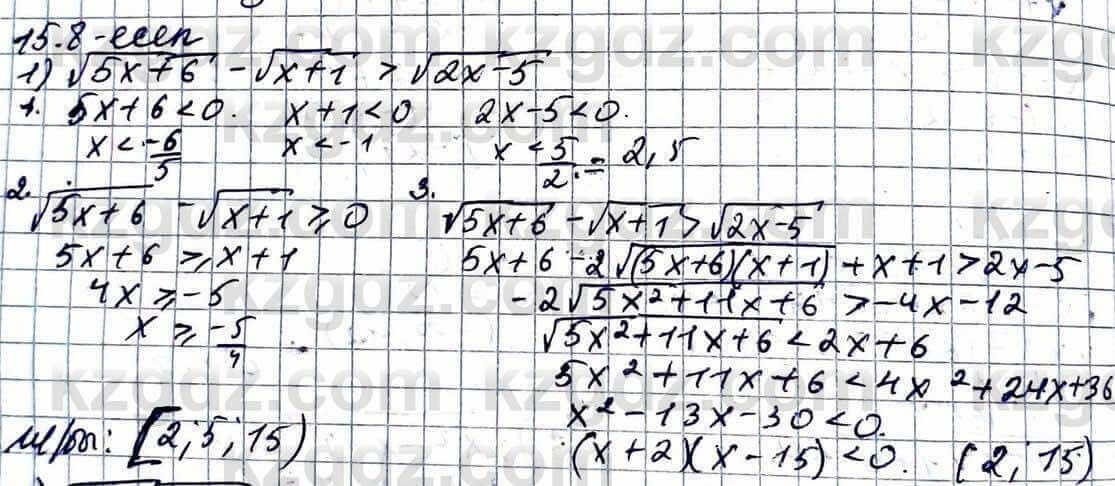 15.8-есеп
1) √(5x+6) - √(x+1) > √(2x-5)
1. 5x+6<0. x+1<0 2x-5<0.
x<-6/5 x<-1 x<5/2 = 2,5
2. √(5x+6) - √(x+1) ≥ 0
5x+6 ≥ x+1
4x ≥ -5
x ≥ -5/4
3. √(5x+6) - √(x+1) > √(2x-5)
5x+6-2√((5x+6)(x+1)) + x+1 > 2x-5
-2√(5x²+11x+6) > -4x-12
√(5x²+11x+6) < 2x+6
5x²+11x+6 < 4x²+24x+36
x²-13x-30<0.
(x+2)(x-15)<0. (2; 15)
[2,5; 15)
kzgdz.com